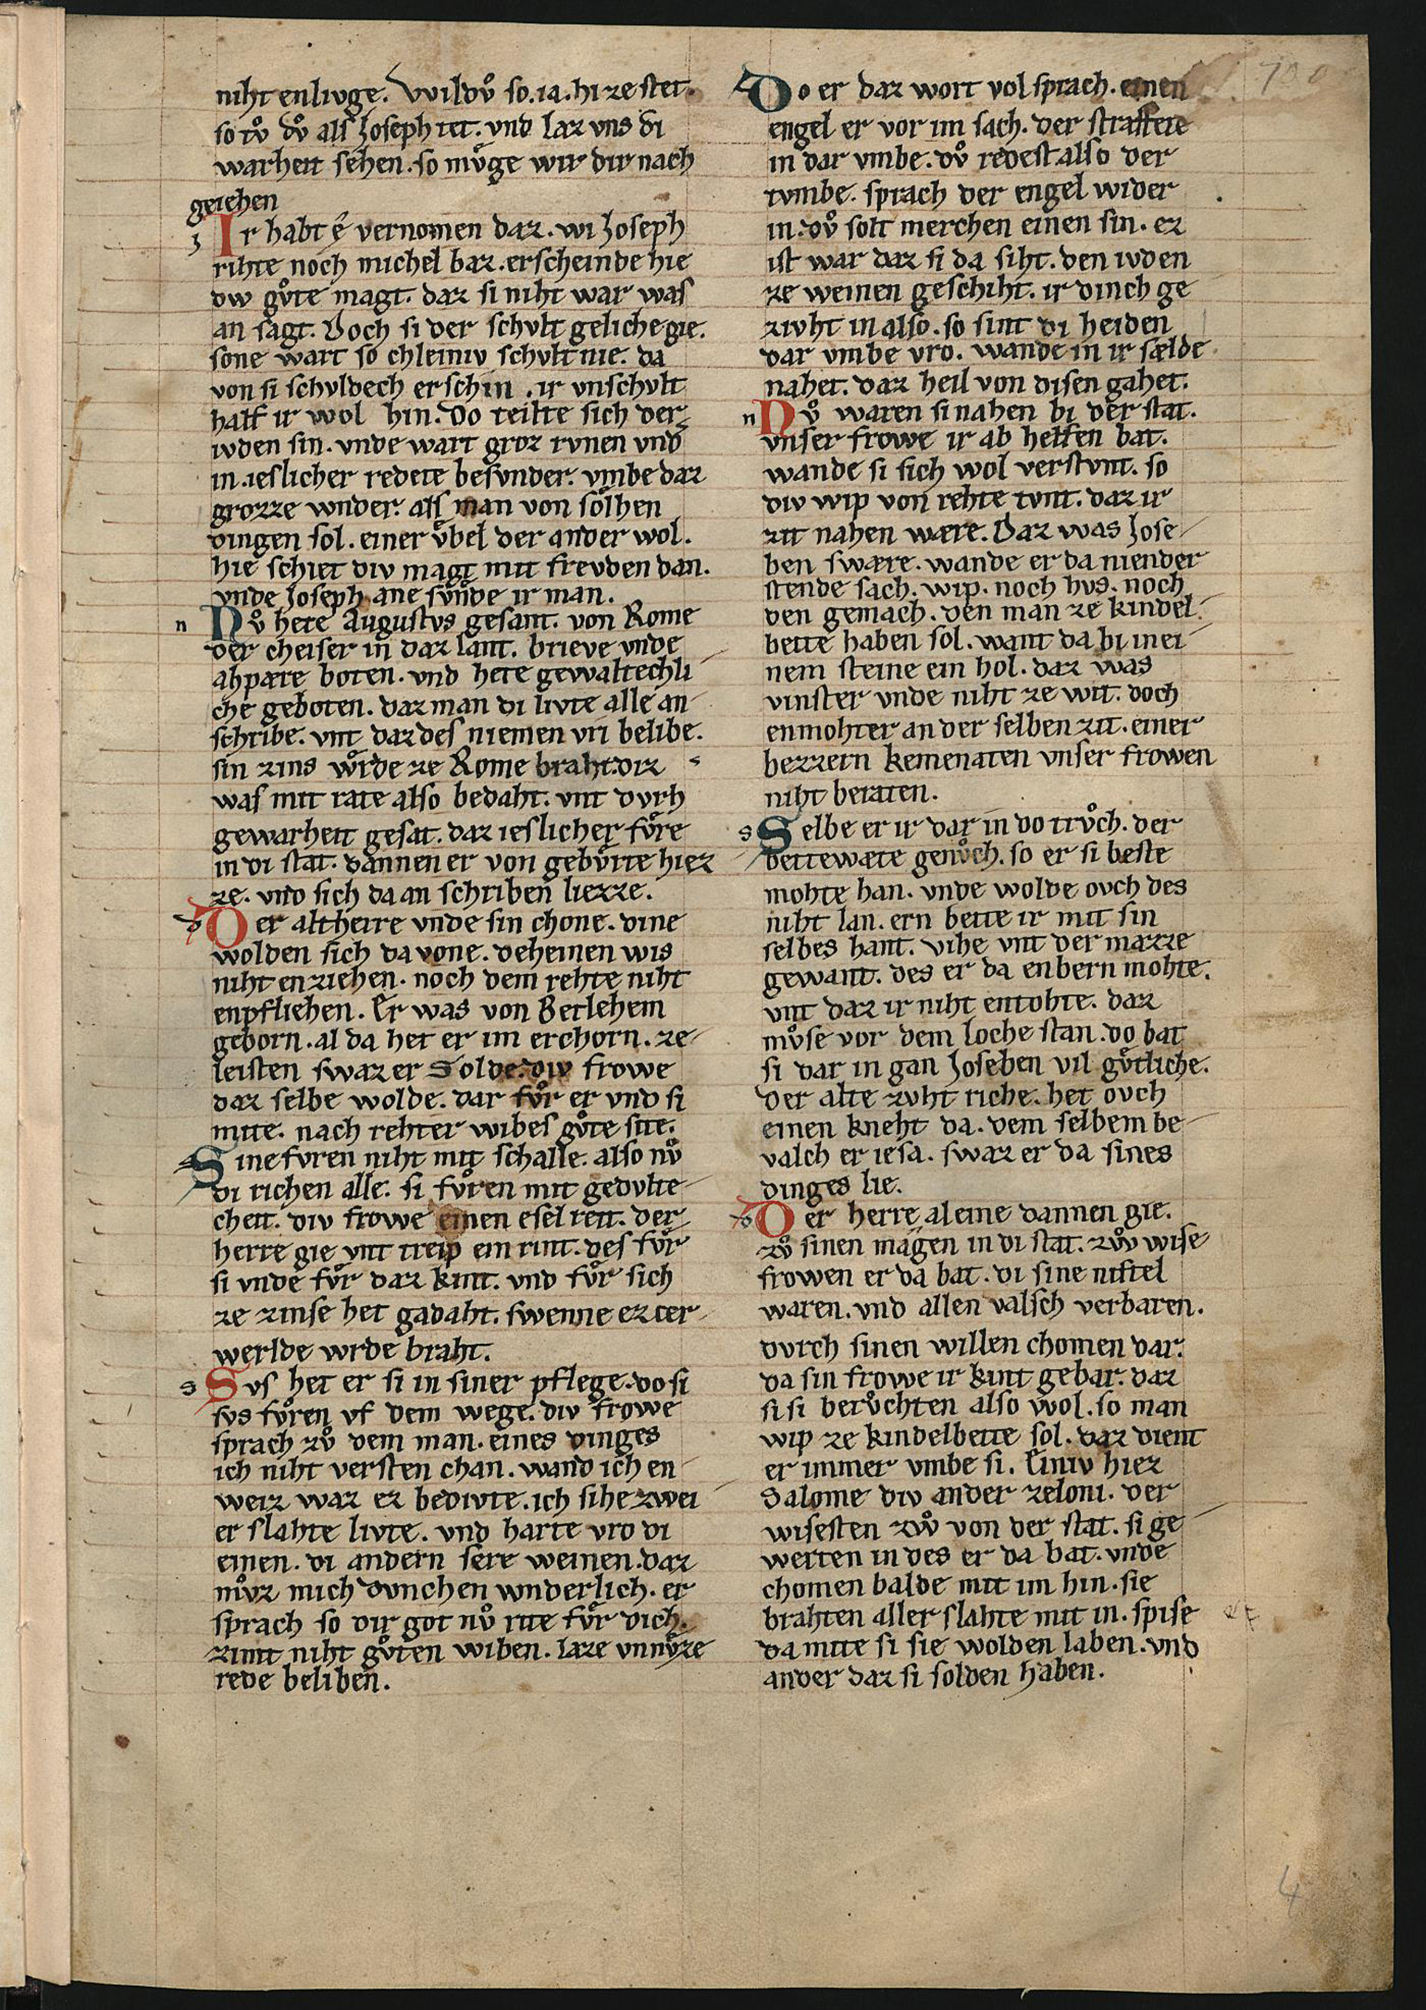 niht enlivge. Wildv̊ so. ia. hi ze stet.
so tv̊ dv̊ als Joseph tet. vnd laz vns di
warheit sehen. so mv̊ge wir dir nach
geiehen
Ir habt ê vernomen daz. wi Joseph
rihte noch michel baz. erscheinde hie
div gv̊te magt. daz si niht war was
an sagt. Doch si der schvlt geliche gie.
sone wart so chleiniv schvlt nie. da
von si schvldech erschin. ir vnschvlt
half ir wol hin. Do teilte sich der
ivden sin. vnde wart groz rvnen vnd
in. ieslicher redete besvnder. vmbe daz
grozze wnder. als man von sölhen
dingen sol. einer v̊bel der ander wol.
hie schiet div magt mit frevden dan.
vnde Joseph ane svnde ir man.
Nv̊ hete Augustvs gesant. von Rome
der cheiser in daz lant. brieve vnde
ahpære boten. vnd hete gewaltechli
che geboten. daz man di livte alle an
schribe. vnt daz des niemen vri belibe.
sin zins wrde ze Rome braht. diz
was mit rate also bedaht. vnt dvrh
gewarheit gesat. daz ieslicher fv̊re
in di stat. dannen er von gebv̊rte hiez
ze. vnd sich da an schriben liezze.
Der altherre vnde sin chone. dine
wolden sich da vone. deheinen wis
niht enziehen. noch dem rehte niht
enpfliehen. Er was von Betlehem
geborn. al da het er im erchorn. ze
leisten swaz er Solde. div frowe
daz selbe wolde. dar fv̊r er vnd si
mite. nach rehter wibes gv̊te site.
Sine fvren niht mit schalle. also nv̊
di richen alle. si fv̊ren mit gedvlte
cheit. div frowe einen esel reit. der
herre gie vnt treip ein rint. des fv̊r
si vnde fv̊r daz kint. vnd fv̊r sich
ze zinse het gadaht. swenne ez cer
werlde wrde braht.
Svs het er si in siner pflege. do si
svs fv̊ren vf dem wege. div frowe
sprach zv̊ dem man. eines dinges
ich niht versten chan. wand ich en
weiz waz ez bedivte. ich sihe zwei
er slahte livte. vnd harte vro di
einen. di andern sere weinen. daz
mv̊z mich dvnchen wnderlich. er
sprach so dir got nv̊ rite fv̊r dich.
zimt niht gv̊ten wiben. laze vnnvze
rede beliben.
Do er daz wort vol sprach. einen
engel er vor im sach. der straffete
in dar vmbe. dv̊ redest also der
tvmbe. sprach der engel wider
in. dv̊ solt merchen einen sin. ez
ist war daz si da siht. den ivden
ze weinen geschiht. ir dinch ge
zivht in also. so sint di heiden
dar vmbe vro. wande in ir sælde
nahet. daz heil von disen gahet.
Nv̊ waren si nahen bi der stat.
vnser frowe ir ab helfen bat.
wande si sich wol verstvnt. so
div wip von rehte tvnt. daz ir
zit nahen wære. Daz was Jose
ben swære. wande er da niender
stende sach. wip. noch hvs. noch
den gemach. den man ze kindel
bette haben sol. want da bi inei
nem steine ein hol. daz was
vinster vnde niht ze wit. doch
enmohter an der selben zit. einer
bezzern kemenaten vnser frowen
niht beraten.
Selbe er ir dar in do trv̊ch. der
bettewæte genv̊ch. so er si beste
mohte han. vnde wolde ovch des
niht lan. ern bette ir mit sin
selbes hant. vihe vnt der mazze
gewant. des er da enbern mohte.
vnt daz ir niht entohte. daz
mv̊se vor dem loche stan. do bat
si dar in gan Joseben vil gv̊tliche.
der alte zvht riche. het ovch
einen kneht da. dem selbem be
valch er iesa. swaz er da sines
dinges lie.
Der herre aleine dannen gie.
zv̊ sinen magen in di stat. zwv wise
frowen er da bat. di sine niftel
waren. vnd allen valsch verbaren.
dvrch sinen willen chomen dar.
da sin frowe ir kint gebar. daz
si si berv̊chten also wol. so man
wip ze kindelbette sol. daz dient
er immer vmbe si. Einiv hiez
Salome div ander zeloni. der
wisesten zwv̊ von der stat. si ge
werten in des er da bat. vnde
chomen balde mit im hin. sie
brahten aller slahte mit in. spise
da mite si sie wolden laben. vnd
ander daz si solden haben.
4